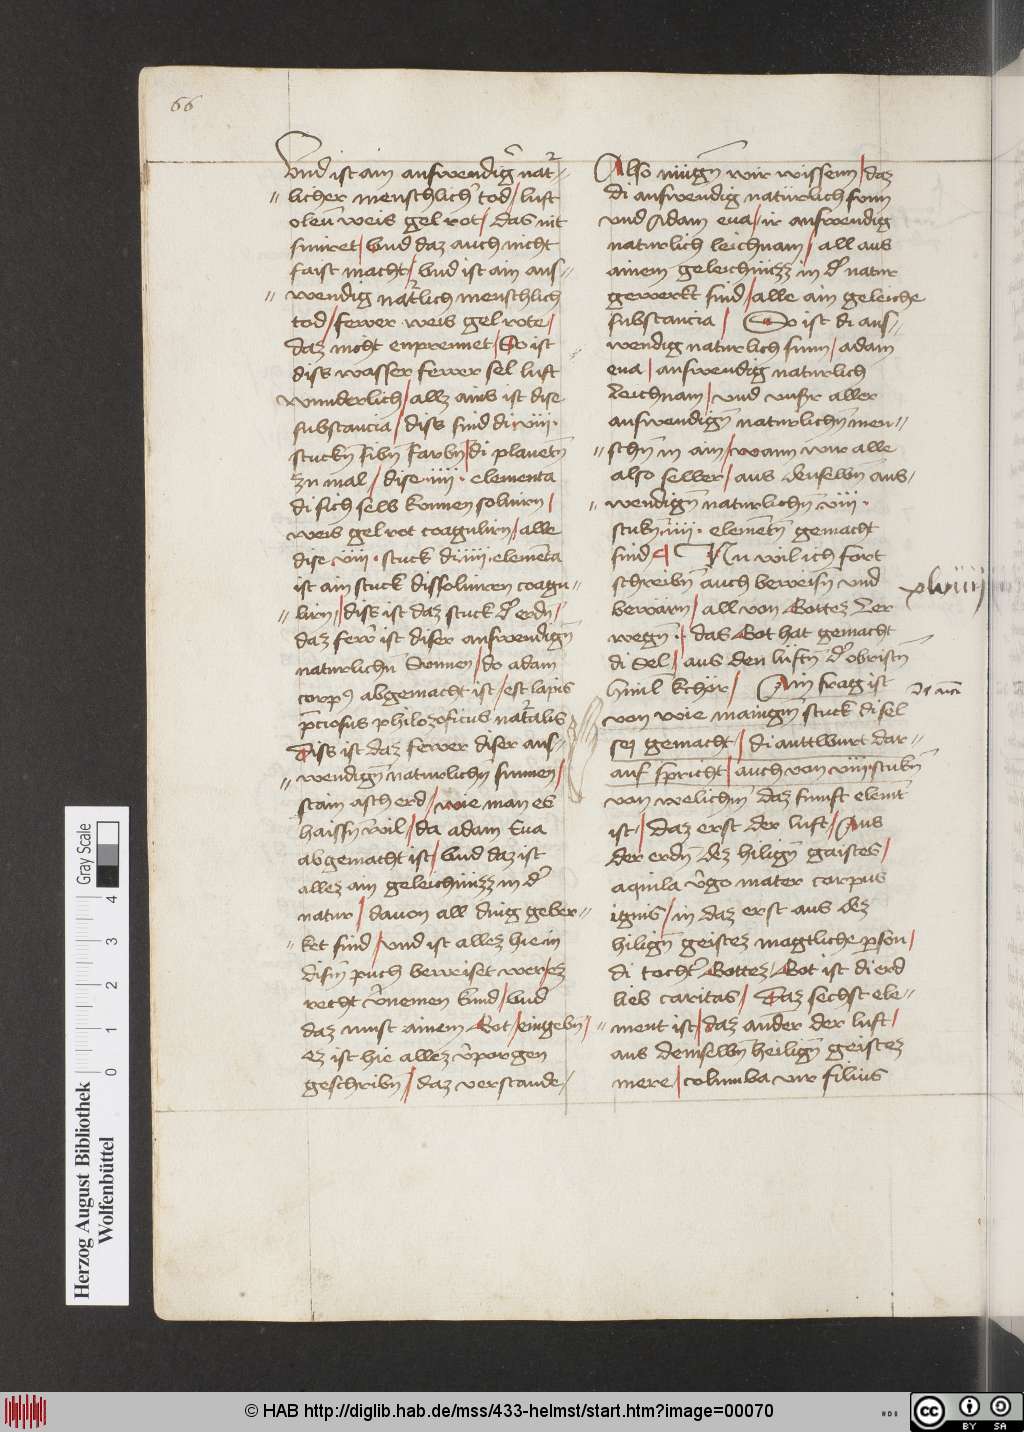 66
Vnd ist ain aufwendig̃ nat᷑-
licher menschlich̃ tod / luft
oleu᷑ weis gel rot / das nit
smiret / Vnd daz auch nicht
faist macht / Vnd ist ain aus-
wendig nat᷑lich menschlich
tod / fewer weis gel rote /
daz nicht enprennet / So ist
diss wasser fewer sel luft
wunderlich / allz ains ist dise
substancia / diss sind di viii.
stuckn̄ sibn̄ farbn̄ / di planetn̄
zu mal / dise iiii. elementa
di sich selb kunnen soluirn /
weis gel rot coagulirn / alle
dise viii. stuck di iiii. elemēta
ist ain stuck dissoluiren coagu-
lirn / diss ist daz stuck d᷑ erdn̄ /
daz few᷑ ist diser auswendign̄
naturlichn̄ Sunnen / do adam
corpꝰ abgemacht ist / est lapis
p̄ciosus philozoficus nat᷑alis
Diss ist daz fewer diser aus-
wendign̄ naturlichn̄ sunnen /
stain asch erd / wie man es
haissn̄ wil / da adam Eua
abgemacht ist / Vnd daz ist
allez ain geleichnüzz in d᷑
natur / dauon all ding geber-
ket sind / vnd ist allez hie in
dism̄ puch beweiset wer ez
recht v᷑nemen kund / Vnd
daz must ainem Got eingebn̄ /
Ez ist hie allez v᷑porgen
geschribn̄ / daz verstande /
Also mügn̄ wir wissenn / daz
di auswendig natürlich sunn
vnd Adam eua / ir auswendig
naturlich leichnam / all aus
ainem geleichnüzz in d᷑ natur
gewerkt sind / alle ain geleiche
substancia / So ist di aus-
wendig naturlich sunn / adam
eua / auswendig naturlich
Leichnam / vnd vnsr aller
auswendign̄ naturlichn̄ men-
schn̄ in ain / wann wir alle
also selber / aus denselbn̄ aus-
wendign̄ naturlichn̄ viii.
stukn̄ iiii. elemētn̄ gemacht
sind / Nu wil ich fort
schreibn̄ auch beweisn̄ vnd
bewarn / all von Gottez Ler
wegn̄ / das Got hat gemacht
di Sel / aus den lüftn̄ d᷑ obristn̄
himil kchör / Ain frag ist
von wie maingn̄ stuck di sel
sei gemacht / di anttwurt dar-
auf spricht / auch von viii stukn̄
von welichm̄ daz funft elem̄t
ist / Daz erst der luft / Aus
der erdn̄ dez hilign̄ gaistes /
aquila v᷑go mater corpus
ignis / in daz erst aus dez
hilign̄ geistez magtliche p̱son /
di tocht᷑ Gottez / Got ist di erd
lieb caritas / Daz sechst ele-
ment ist / daz ander der luft /
aus demselbn̄ heilign̄ geistez
mere / columba vir filius
xlviiij
Herzog August Bibliothek
Wolfenbüttel
Gray Scale
0 1 2 3 4
© HAB http://diglib.hab.de/mss/433-helmst/start.htm?image=00070
cc BY SA